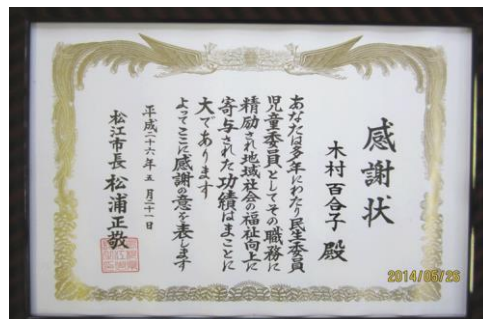 感謝状
木村百合子 殿
あなたは多年にわたり民生委員
児童委員としてその職務に
精励され地域社会の福祉向上に
寄与された功績はまことに
大であります
よってここに感謝の意を表します
平成二十六年五月二十一日
松江市長 松浦正敬
2014/05/26